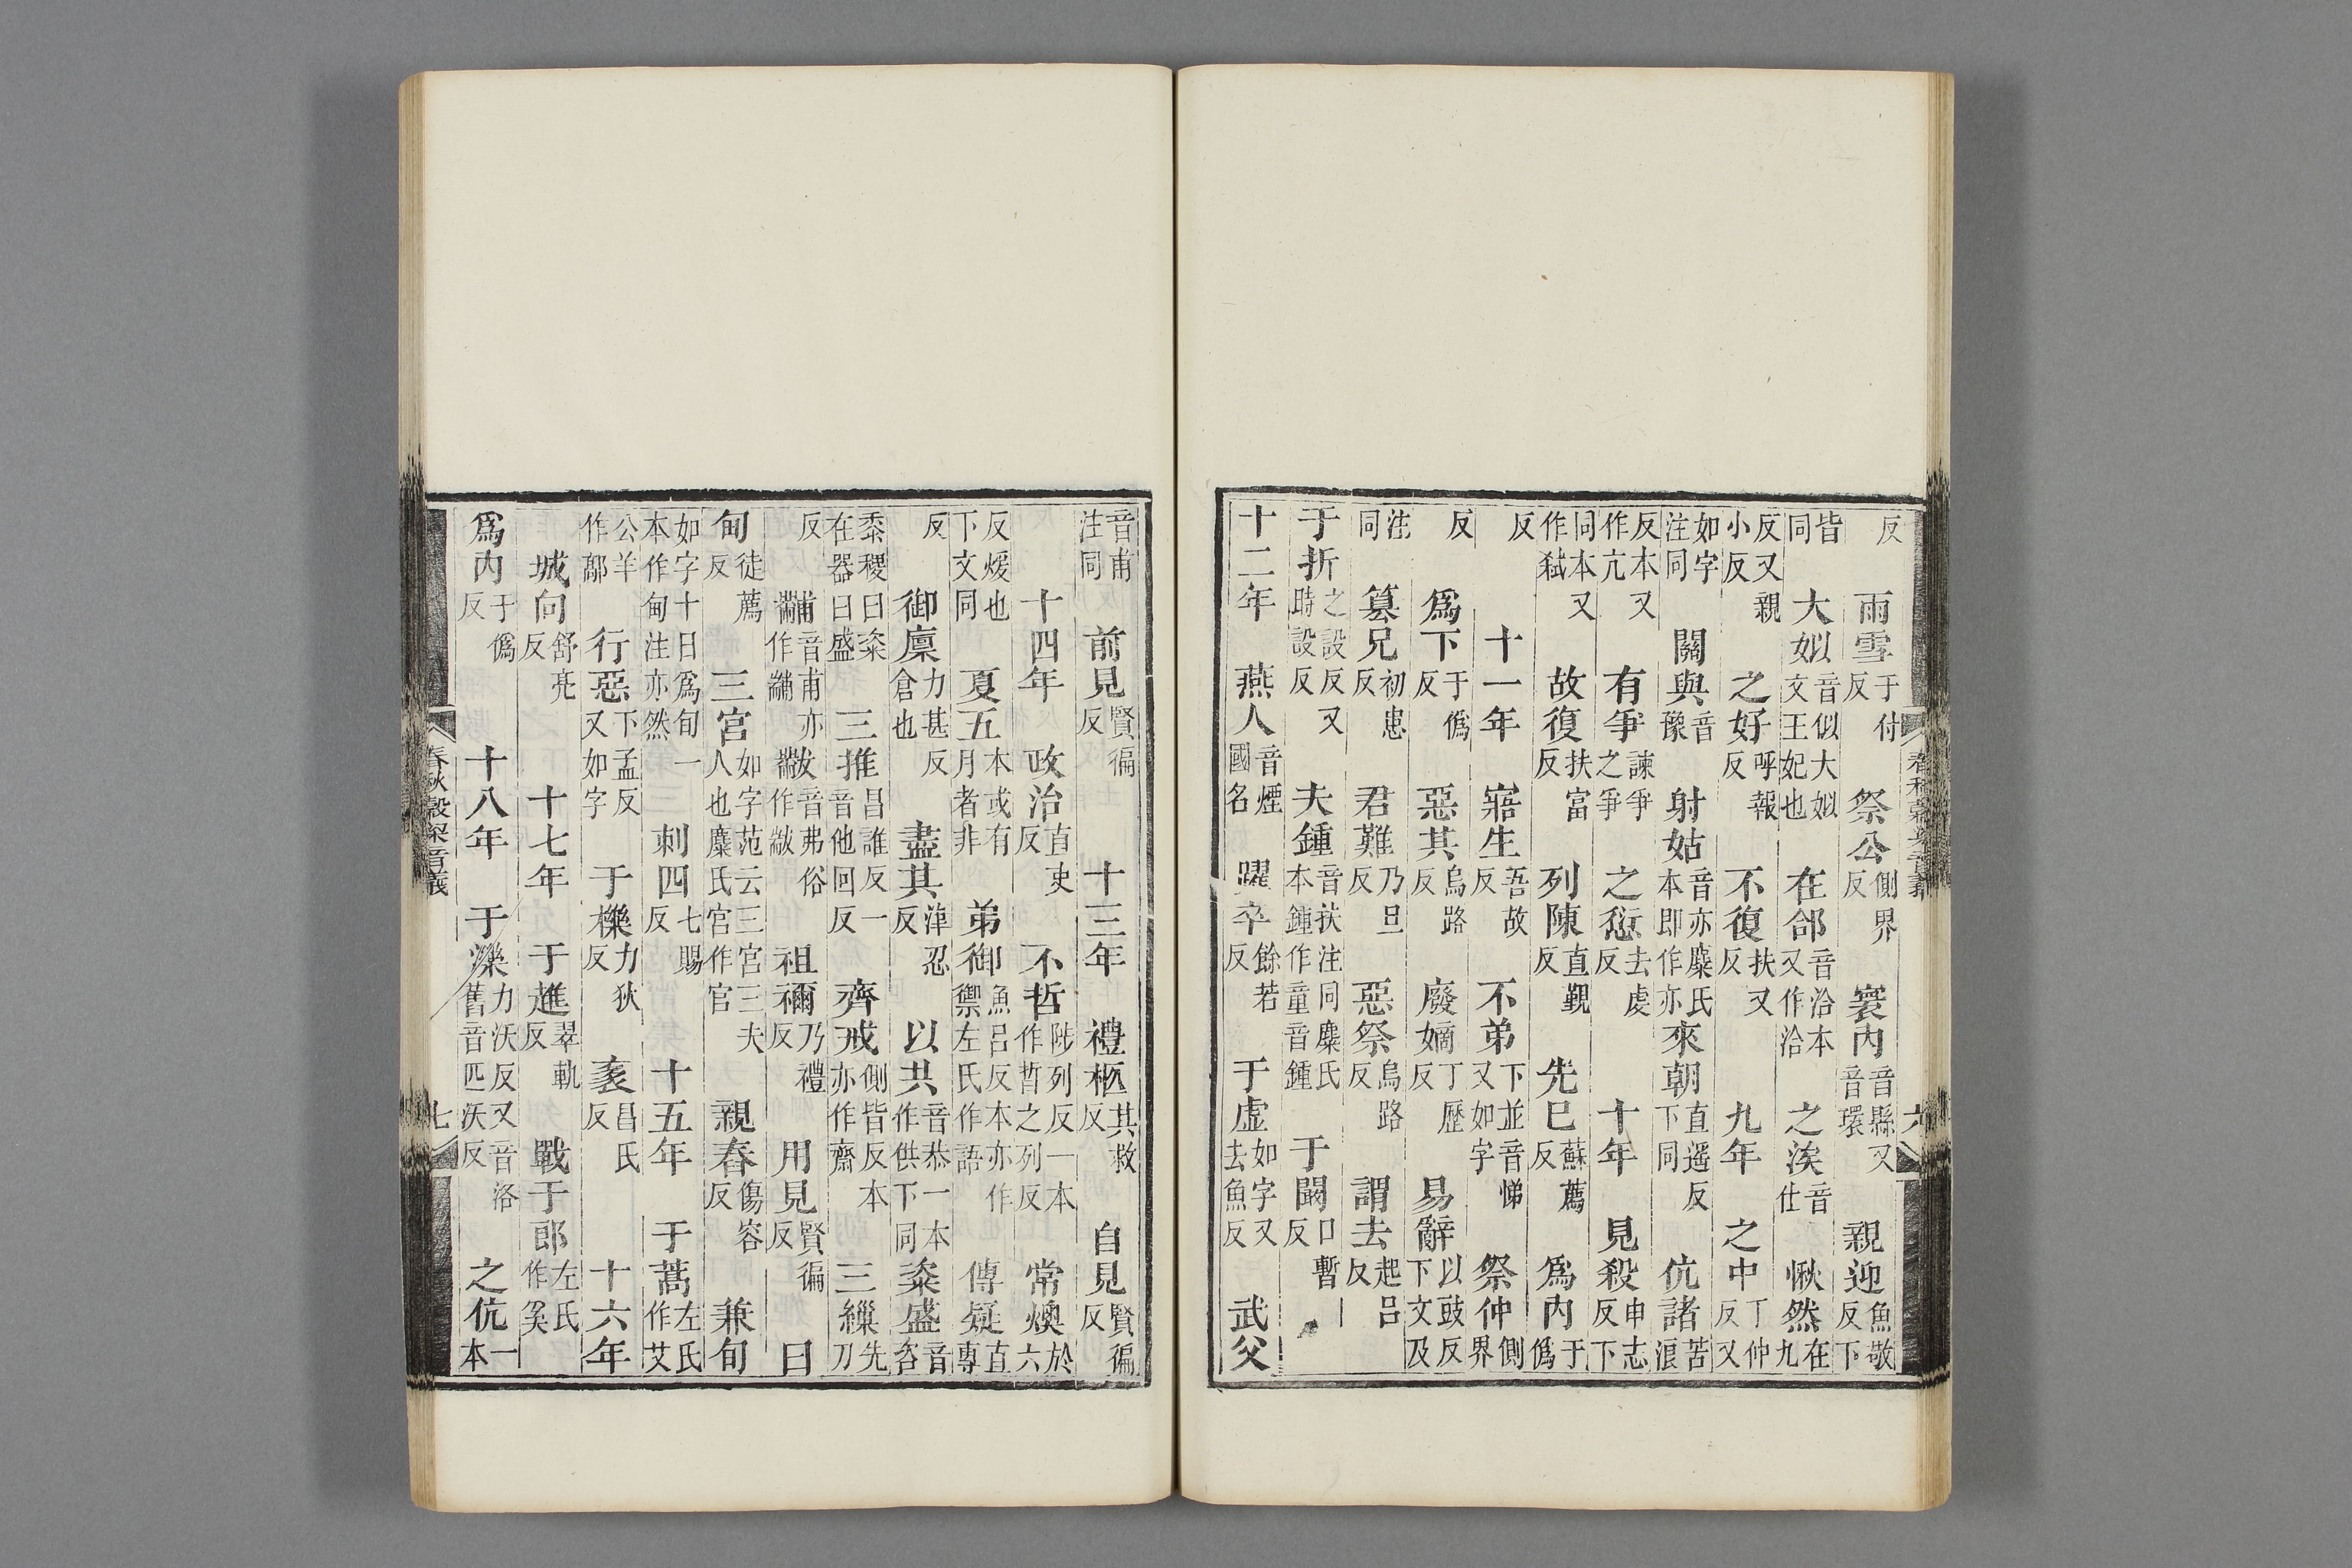 反雨雪于付反祭公側界反寰内音縣又音環親迎魚敬反下
皆同大姒音似大姒文王妃也在郃音洽本又作洽之涘音仕愀然在九
反又親小反之好呼報反不復扶又反九年之中丁仲反又
如字注同關與音豫射姑音亦麋氏本即作亦來朝直遥反下同伉諸苦浪
反本又作亢有爭諫爭之爭之愆去虔反十年見殺申志反下
同本又作弒故復扶富反列陳直覲反先巳蘇薦反爲内于僞
反十一年寤生吾故反不弟下並音悌又如字祭仲側界
反爲下于僞反惡其烏路反廢嫡丁歷反易辭以豉反下文及
注同篡兄初患反君難乃旦反惡祭烏路反謂去起呂反
于折之設反又時設反夫鍾音扶注同麋氏本鍾作童音鍾于闞口暫反
十二年燕人音煙國名躍卒餘若反于虛如字又去魚反武父
春秋穀梁音義 六
音甫注同前見賢徧反十三年禮柩其救反自見賢徧反
十四年政治直吏反不哲陟列反一本作晢之列反常燠於六
反煖也下文同夏五本或有月者非弟御魚呂反本亦作禦左氏作語傳疑直專
反御廩力甚反倉也盡其津忍反以共音恭一本作供下同粢盛音咨
黍稷曰粢在器曰盛三推昌誰反一音他回反齊戒側皆反本亦作齋三繅先刀
反黼音甫亦作黼黻音弗俗作黻祖禰乃禮反用見賢徧反曰
甸徒薦反三宮如字范云三宮三夫人也麋氏宮作官親舂傷容反兼旬
如字十日爲旬一本作甸注亦然刺四七賜反十五年于蒿左氏作艾
公羊作鄗行惡下孟反又如字于櫟力狄反袲昌氏反十六年
城向舒亮反十七年于趡翠軌反戰于郎左氏作奚
爲内于僞反十八年于濼力沃反又音洛舊音匹沃反之伉一本
春秋穀梁音義 七